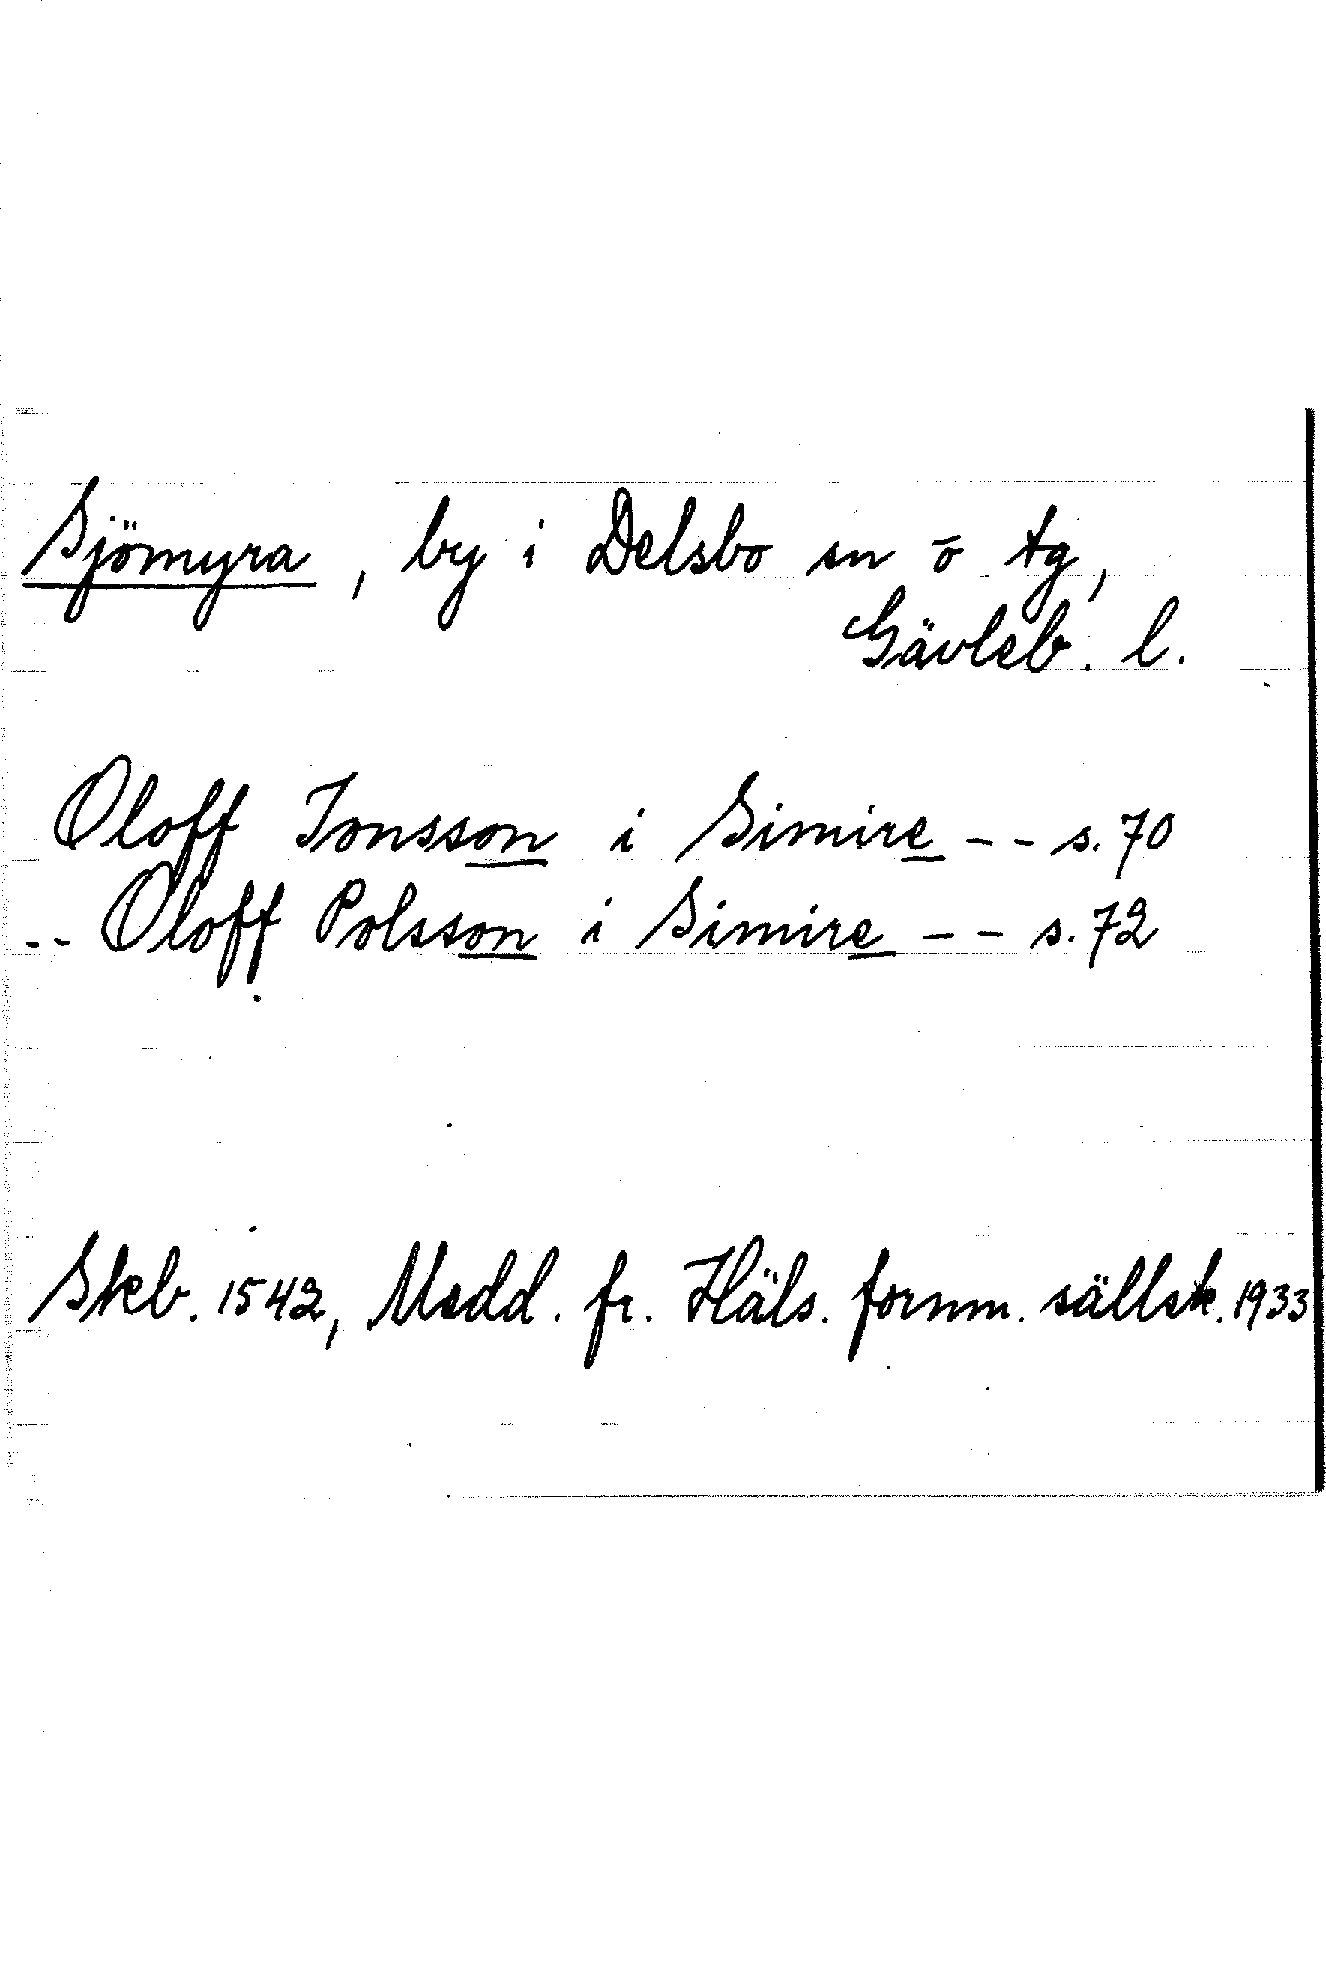 Sjömyra, by i Delsbo sn o tg,
Gävleb. l.
Oloff Jonsson i Simire -- s. 70
-- Oloff Polsson i Simire -- s. 72
Skeb. 1542, Medd. fr. Häls. fornm. sällsk. 1933